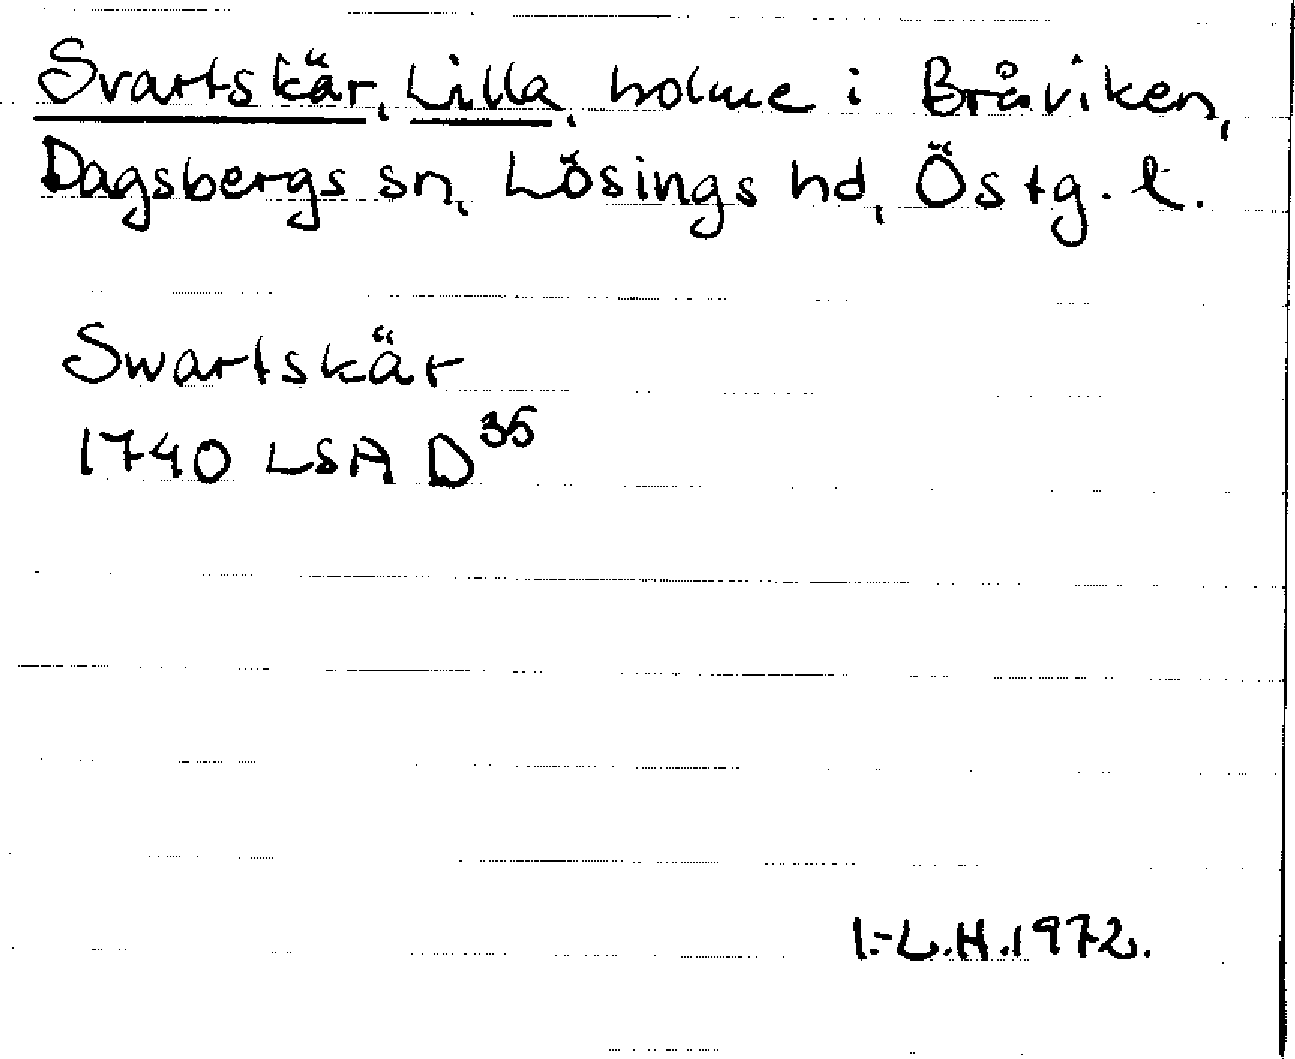 Svartskär, Lilla, holme i Bråviken,
Dagsbergs sn, Lösings hd, Östg. l.
Swartskär
1740 LSA D³⁵
I.-L.H.1972.